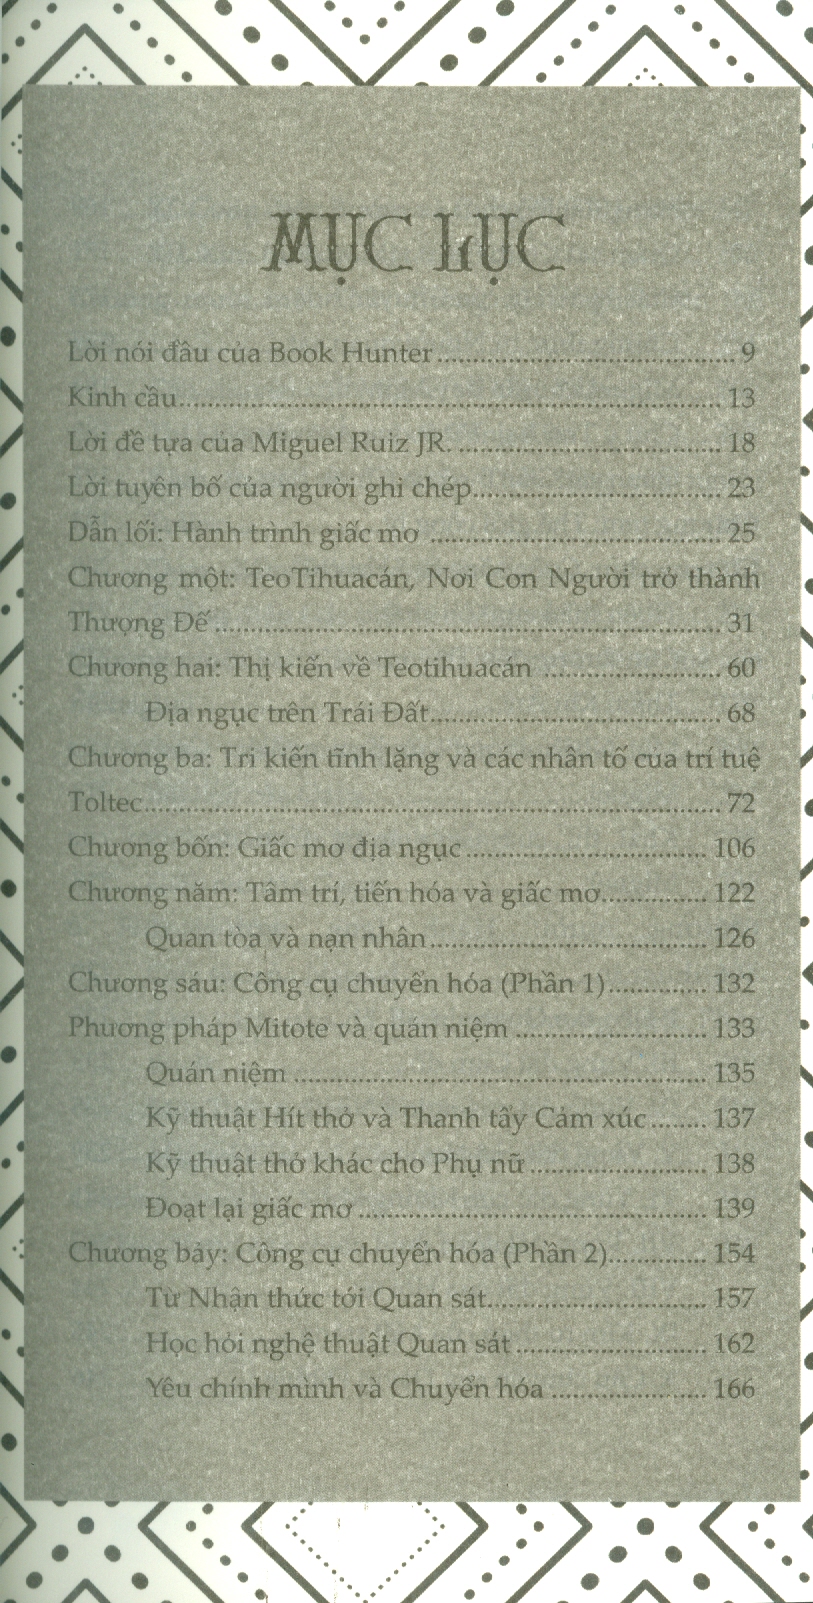 MỤC LỤC
Lời nói đầu của Book Hunter........................................ 9
Kinh cầu.......................................................................... 13
Lời đề tựa của Miguel Ruiz JR. .................................... 18
Lời tuyên bố của người ghi chép.................................. 23
Dẫn lối: Hành trình giấc mơ ........................................ 25
Chương một: TeoTihuacán, Nơi Con Người trở thành
Thượng Đế ..................................................................... 31
Chương hai: Thị kiến về Teotihuacán ........................ 60
Địa ngục trên Trái Đất........................................ 68
Chương ba: Tri kiến tĩnh lặng và các nhân tố của trí tuệ
Toltec............................................................................... 72
Chương bốn: Giấc mơ địa ngục ................................. 106
Chương năm: Tâm trí, tiến hóa và giấc mơ............... 122
Quan tòa và nạn nhân...................................... 126
Chương sáu: Công cụ chuyển hóa (Phần 1).............. 132
Phương pháp Mitote và quán niệm .......................... 133
Quán niệm ......................................................... 135
Kỹ thuật Hít thở và Thanh tẩy Cảm xúc........ 137
Kỹ thuật thở khác cho Phụ nữ ........................ 138
Đoạt lại giấc mơ ................................................ 139
Chương bảy: Công cụ chuyển hóa (Phần 2).............. 154
Từ Nhận thức tới Quan sát.............................. 157
Học hỏi nghệ thuật Quan sát .......................... 162
Yêu chính mình và Chuyển hóa ..................... 166